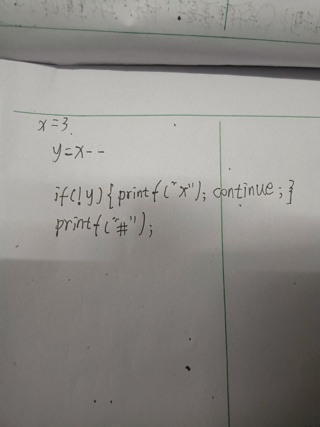 x=3.
y=x--
if(!y){printf("x"); continue;}
printf("#");